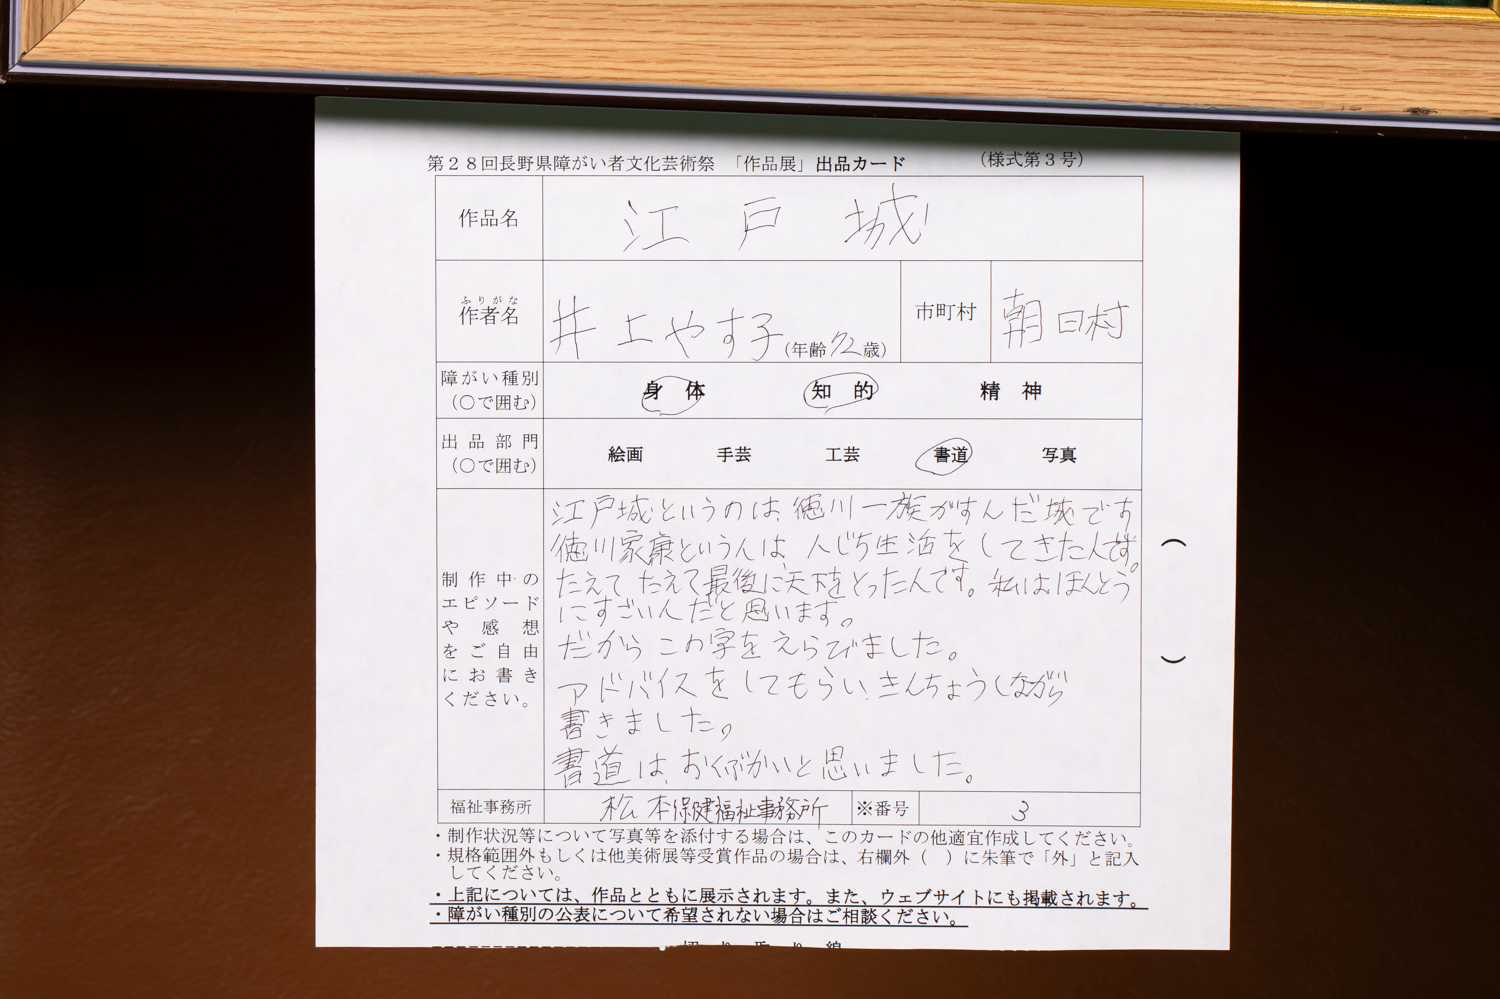 第28回長野県障がい者文化芸術祭 「作品展」出品カード (様式第3号)
作品名 江戸城
ふりがな
作者名 井上やす子 (年齢72歳) 市町村 朝日村
障がい種別 (○で囲む) 身体 知的 精神
出品部門 (○で囲む) 絵画 手芸 工芸 書道 写真
制作中の
エピソード
や感想
をご自由
にお書き
ください。
江戸城というのは、徳川一族がすんだ城です
徳川家康というんは、人じち生活をしてきた人です。
たえて たえて最後に天下をとったんです。私は、ほんとう
にすごいんだと思います。
だから この字を えらびました。
アドバイスを してもらい、きんちょうしながら
書きました。
書道は、おくぶかいと思いました。
福祉事務所 松本保健福祉事務所 ※番号 3
・制作状況等について写真等を添付する場合は、このカードの他適宜作成してください。
・規格範囲外もしくは他美術展等受賞作品の場合は、右欄外( )に朱筆で「外」と記入
してください。
・上記については、作品とともに展示されます。また、ウェブサイトにも掲載されます。
・障がい種別の公表について希望されない場合はご相談ください。
切り取り線